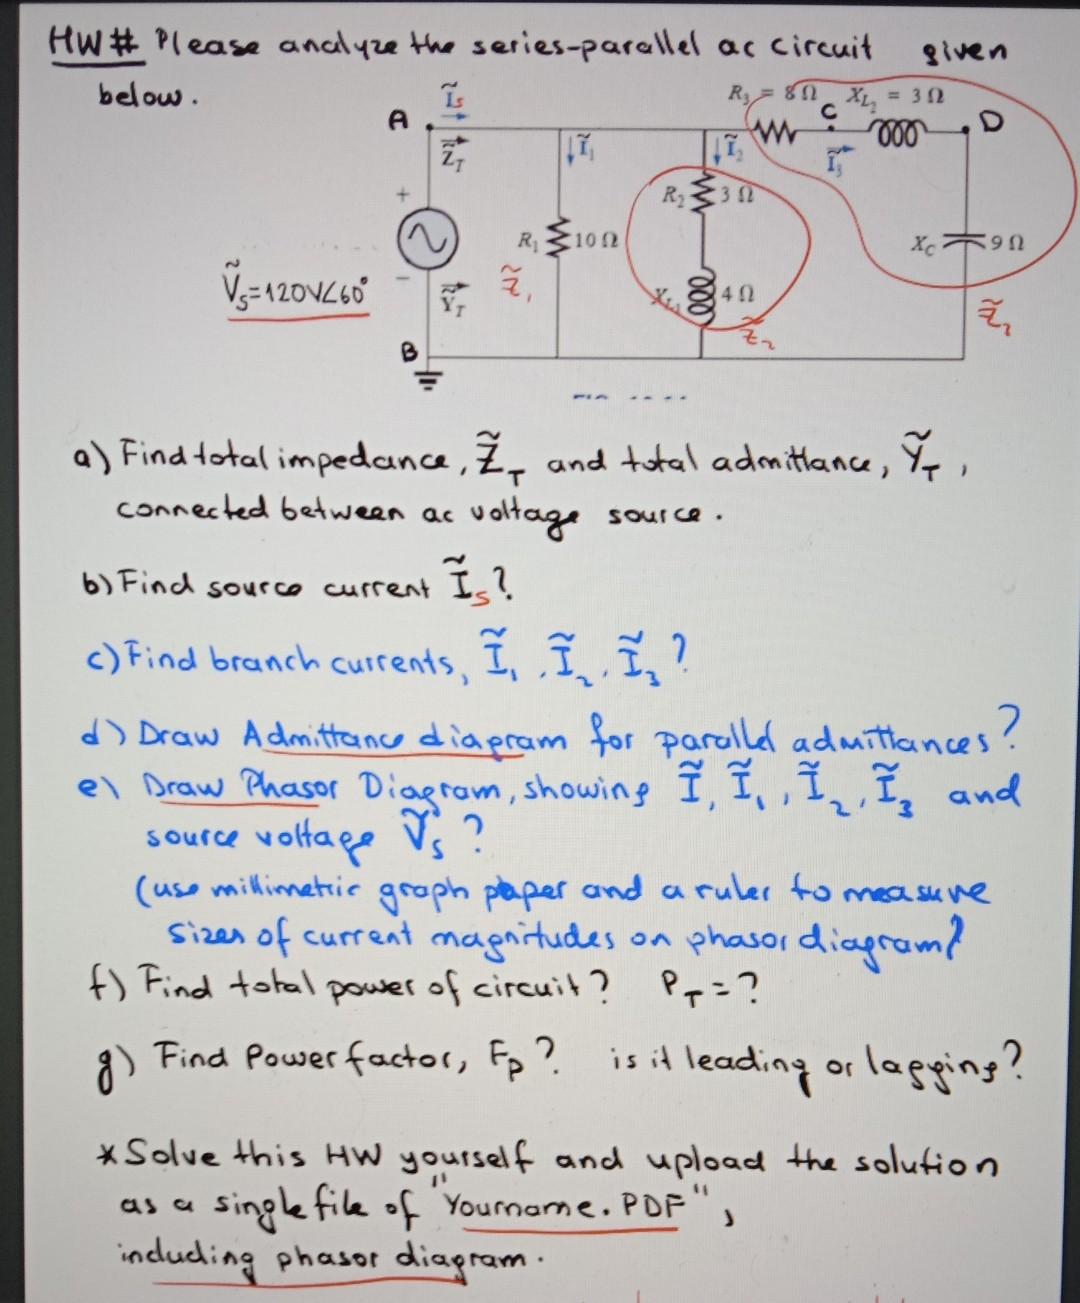 HW# Please analyze the series-parallel ac circuit given
below.
R₃ = 8 Ω X_L₂ = 3 Ω
A Ĩs C D
Z̃_T Ĩ₁ Ĩ₂ Ĩ₃
+ R₂ 3 Ω
R₁ 10 Ω X_C 9 Ω
Ṽs=120V∠60°
- Ỹ_T Z̃₁ X_L₁ 4 Ω
Z̃₂ Z̃₂
B
a) Find total impedance, Z̃_T and total admittance, Ỹ_T,
connected between ac voltage source.
b) Find source current Ĩs?
c) Find branch currents, Ĩ₁, Ĩ₂, Ĩ₃?
d) Draw Admittance diagram for parallel admittances?
e) Draw Phasor Diagram, showing Ĩ, Ĩ₁, Ĩ₂, Ĩ₃ and
source voltage Ṽs?
(use millimetric graph paper and a ruler to measure
sizes of current magnitudes on phasor diagram)
f) Find total power of circuit? P_T = ?
g) Find Power factor, Fp? is it leading or lagging?
* Solve this HW yourself and upload the solution
as a single file of "Yourname.PDF",
including phasor diagram.